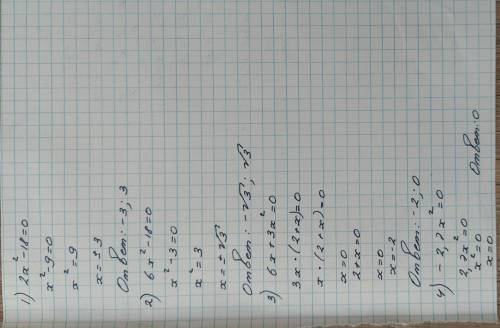 1) 2x²-18=0
x²-9=0
x²=9
x=±3
Ответ: -3; 3
2) 6x²-18=0
x²-3=0
x²=3
x=±√3
Ответ: -√3; √3
3) 6x+3x²=0
3x·(2+x)=0
x·(2+x)=0
x=0
2+x=0
x=0
x=-2
Ответ: -2; 0
4) -2,7x²=0
2,7x²=0
x²=0
x=0
Ответ: 0